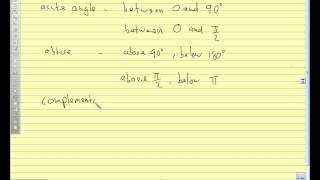 acute angle - between 0 and 90°
between 0 and π/2
obtuse - above 90°, below 180°
above π/2, below π
complementa